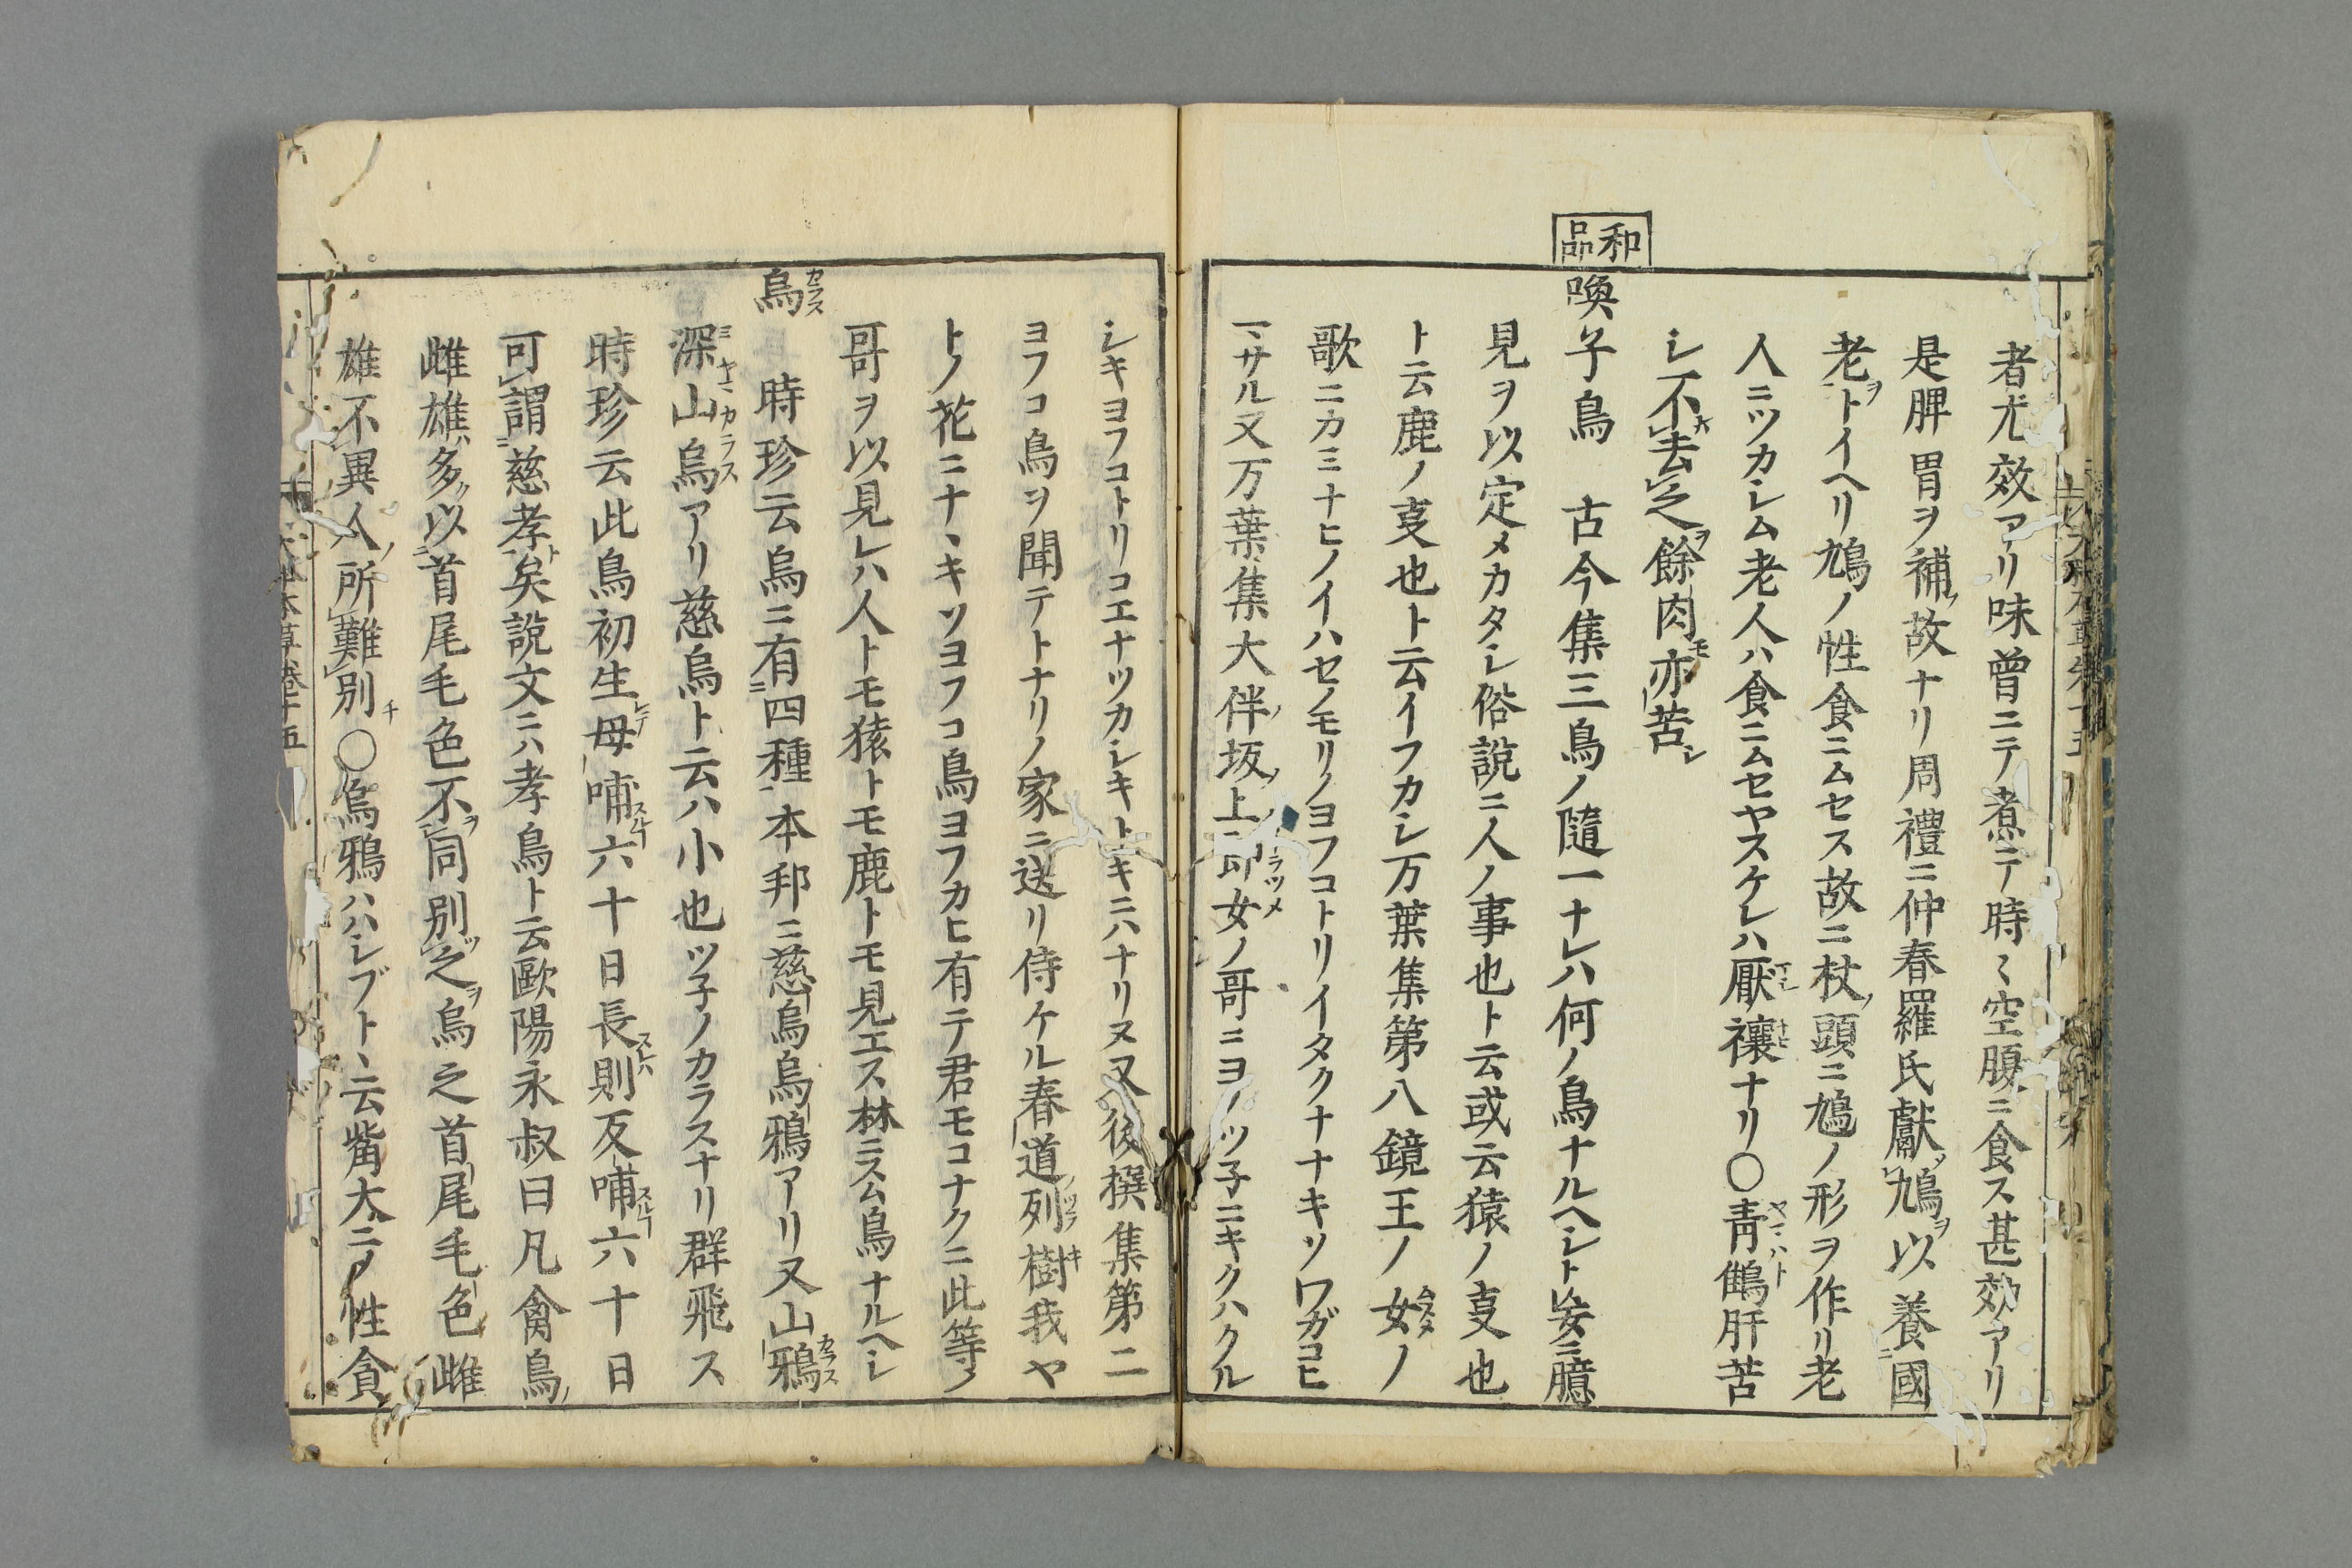 者尤效アリ味曾ニテ煮テ時〻空腹ニ食ス甚效アリ
是脾胃ヲ補故ナリ周禮ニ仲春羅氏獻鳩ヲ以養國
老ヲトイヘリ鳩ノ性食ニムセス故ニ杖ノ頭ニ鳩ノ形ヲ作リ老
人ニツカシム老人ハ食ニムセヤスケレハ厭禳ナリ〇靑䳡肝苦
シ不去之ヲ餘肉モ亦苦シ
和品
喚子鳥 古今集三鳥ノ隨一ナレハ何ノ鳥ナルヘシト安ニ臆
見ヲ以定メカタシ俗說ニ人ノ事也ト云或云猿ノ叓也
ト云鹿ノ叓也ト云イフカシ万葉集第八鏡王ノ女ノ
歌ニカミナヒノイハセノモリノヨフコトリイタクナナキソワガコヒ
マサル又万葉集大伴坂上郎女ノ哥ニヨノツ子ニキクハクル
シキヨフコトリコエナツカシキトキニハナリヌ又後撰集第二
ヨフコ鳥ヲ聞テトナリノ家ニ送リ侍ケル春道列樹我ヤ
トノ花ニナヽキソヨフコ鳥ヨフカヒ有テ君モコナクニ此等ノ
哥ヲ以見レハ人トモ猿トモ鹿トモ見エス林ニスム鳥ナルヘシ
烏カラス 時珍云烏ニ有四種本邦ニ慈烏烏鴉アリ又山鴉カラス
深山烏ミヤマカラスアリ慈烏ト云ハ小也ツ子ノカラスナリ群飛ス
時珍云此鳥初生母哺六十日長則反哺六十日
可謂慈孝矣說文ニハ孝鳥ト云歐陽永叔曰凡禽鳥ノ
雌雄ハ多以首尾毛色不同別之烏之首尾毛色雌
雄不異人ノ所難別〇烏鴉ハハシブトヽ云觜大ニノ性貪
大和本草卷十五